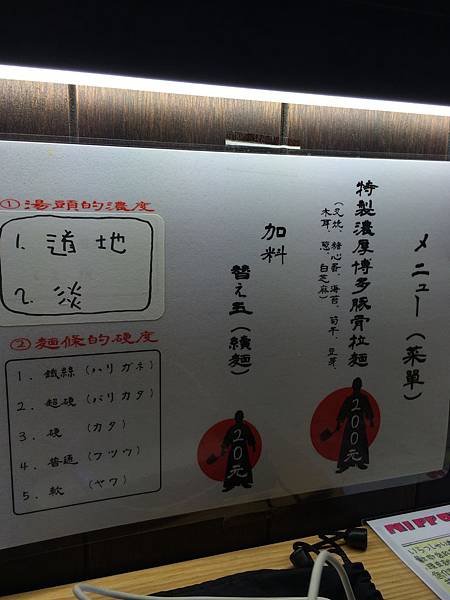 メニュー(菜單)
特製濃厚博多豚骨拉麵
(叉炊、糖心蛋、海苔、筍干、豆芽、
木耳、蔥、白芝麻)
200元
加料
替え玉(續麵)
20元
①湯頭的濃度
1. 道地
2. 淡
②麵條的硬度
1. 鐵絲 (ハリガネ)
2. 超硬 (バリカタ)
3. 硬 (カタ)
4. 普通 (フツウ)
5. 軟 (ヤワ)
NIPP